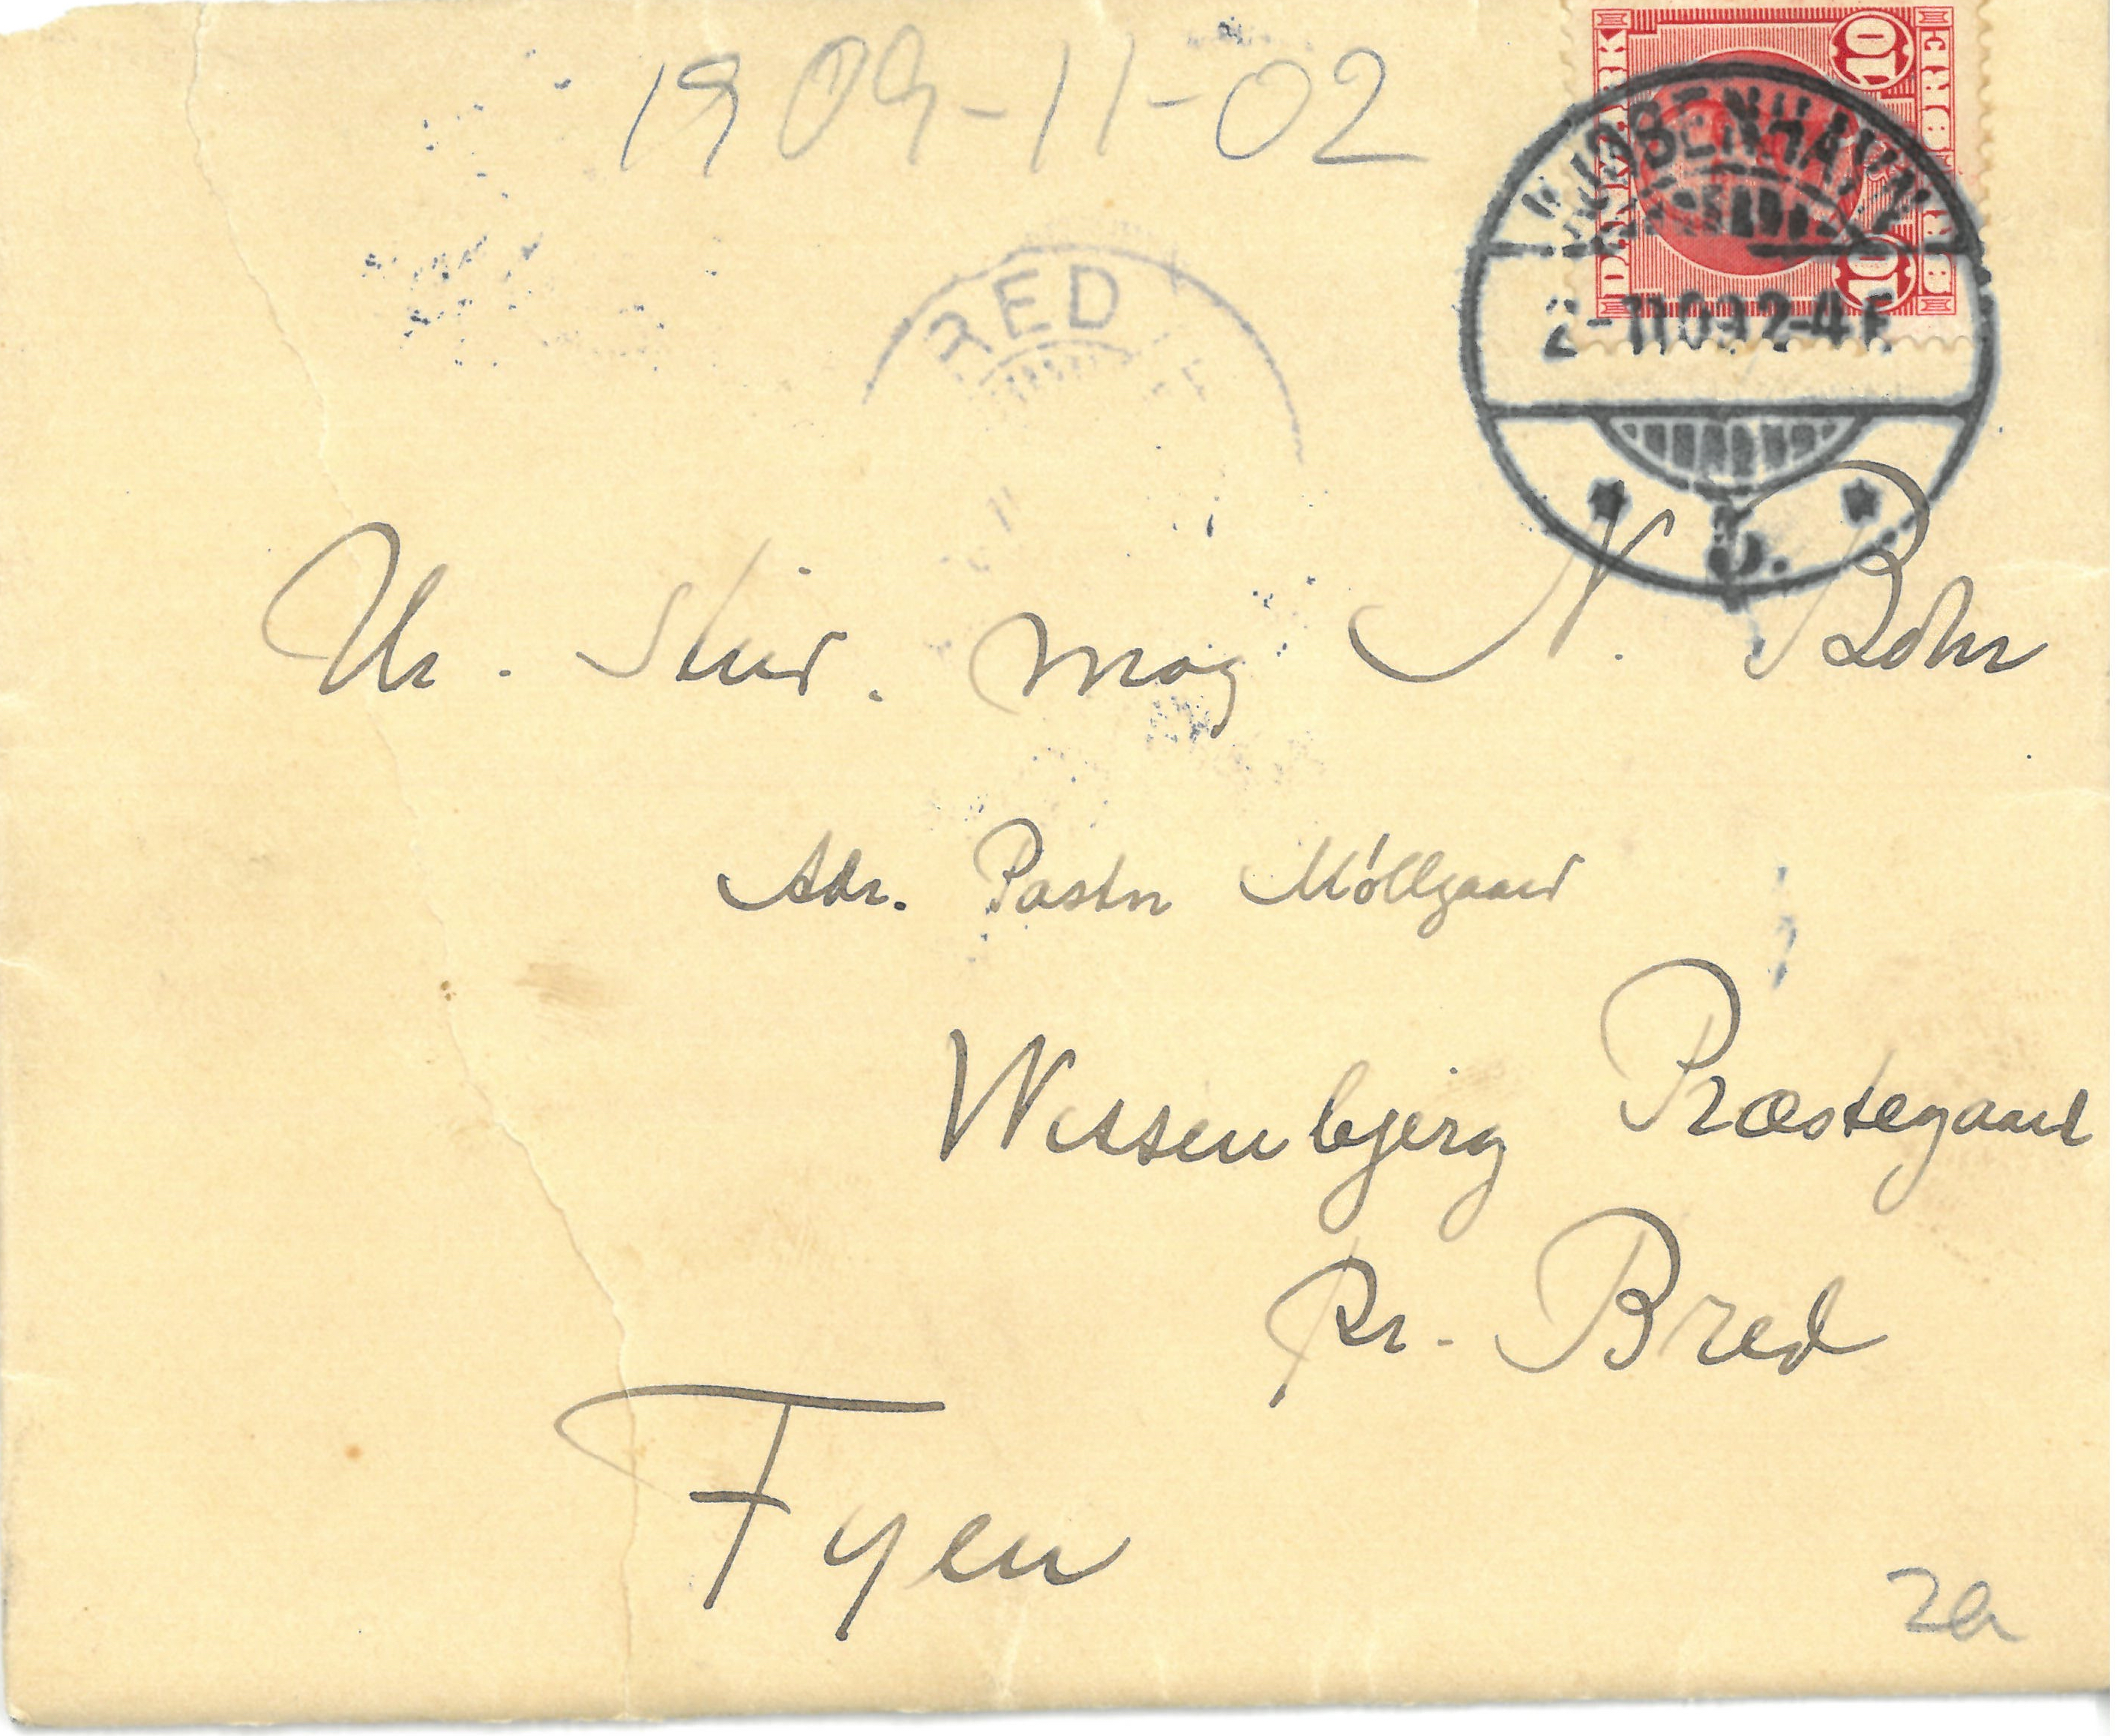 1909-11-02
DANMARK
10 10
KJØBENHAVN
2-11 09 2-4 E
Ø.
RED
Hr. Stud. mag N. Bohr
Adr. Pastor Möllgaard
Wissenbjerg Præstegaard
Pr. Bred
Fyen
2a